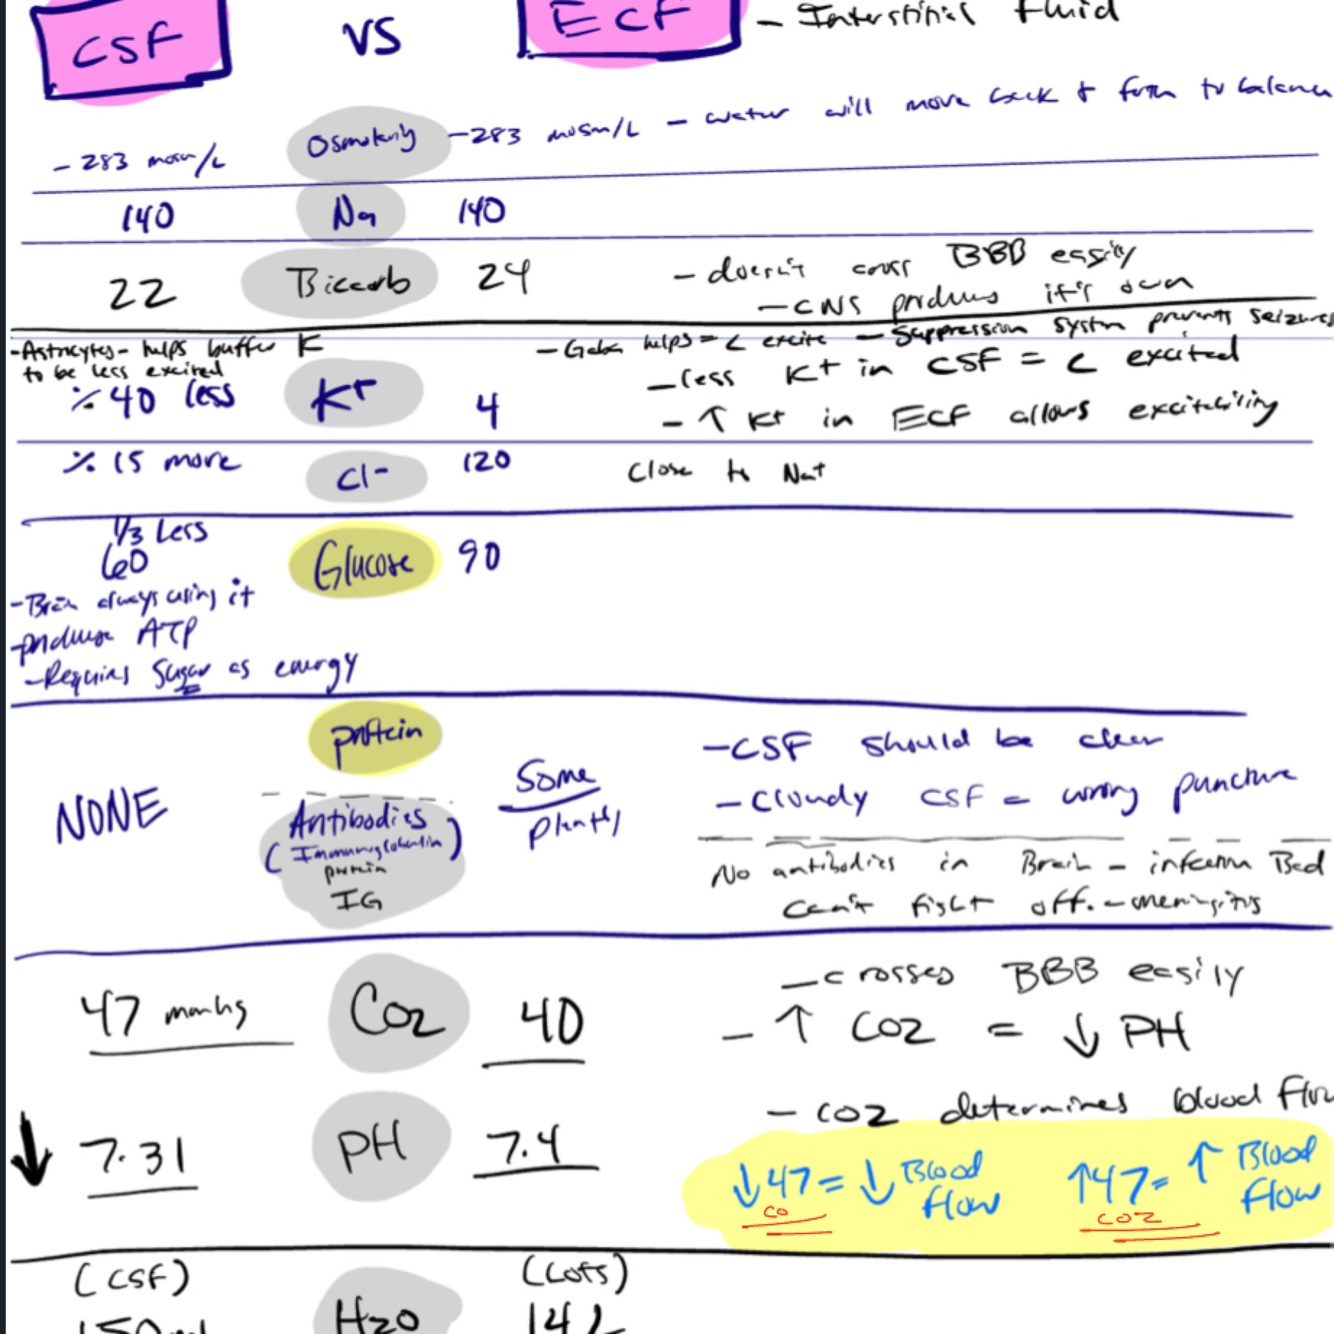 CSF VS ECF - Interstitial fluid
- 283 mosm/L Osmolarity - 283 mosm/L - water will move back + forth to balance
140 Na 140
22 Bicarb 24 - doesn't cross BBB easily
- CNS produces it's own
- Astrocytes - helps buffer K - Gaba helps = < excite - Suppression system prevents seizures
to be less excited
% 40 less K+ 4 - less K+ in CSF = < excited
- ↑ K+ in ECF allows excitability
% 15 more Cl- 120 Close to Na+
1/3 Less
60 Glucose 90
- Brain always using it
- produce ATP
- Requires Sugar as energy
protein - CSF should be clear
NONE Some - Cloudy CSF = wrong puncture
Antibodies plenty
(Immunoglobulin) No antibodies in Brain - infection Bad
protein Can't fight off. - meningitis
IG
47 mmhg CO2 40 - crosses BBB easily
- ↑ CO2 = ↓ PH
- CO2 determines blood flow
↓ 7.31 PH 7.4 ↓47 = ↓ Blood flow ↑47 = ↑ Blood flow
CO CO2
(CSF) (Lots)
150ml H2O 14L